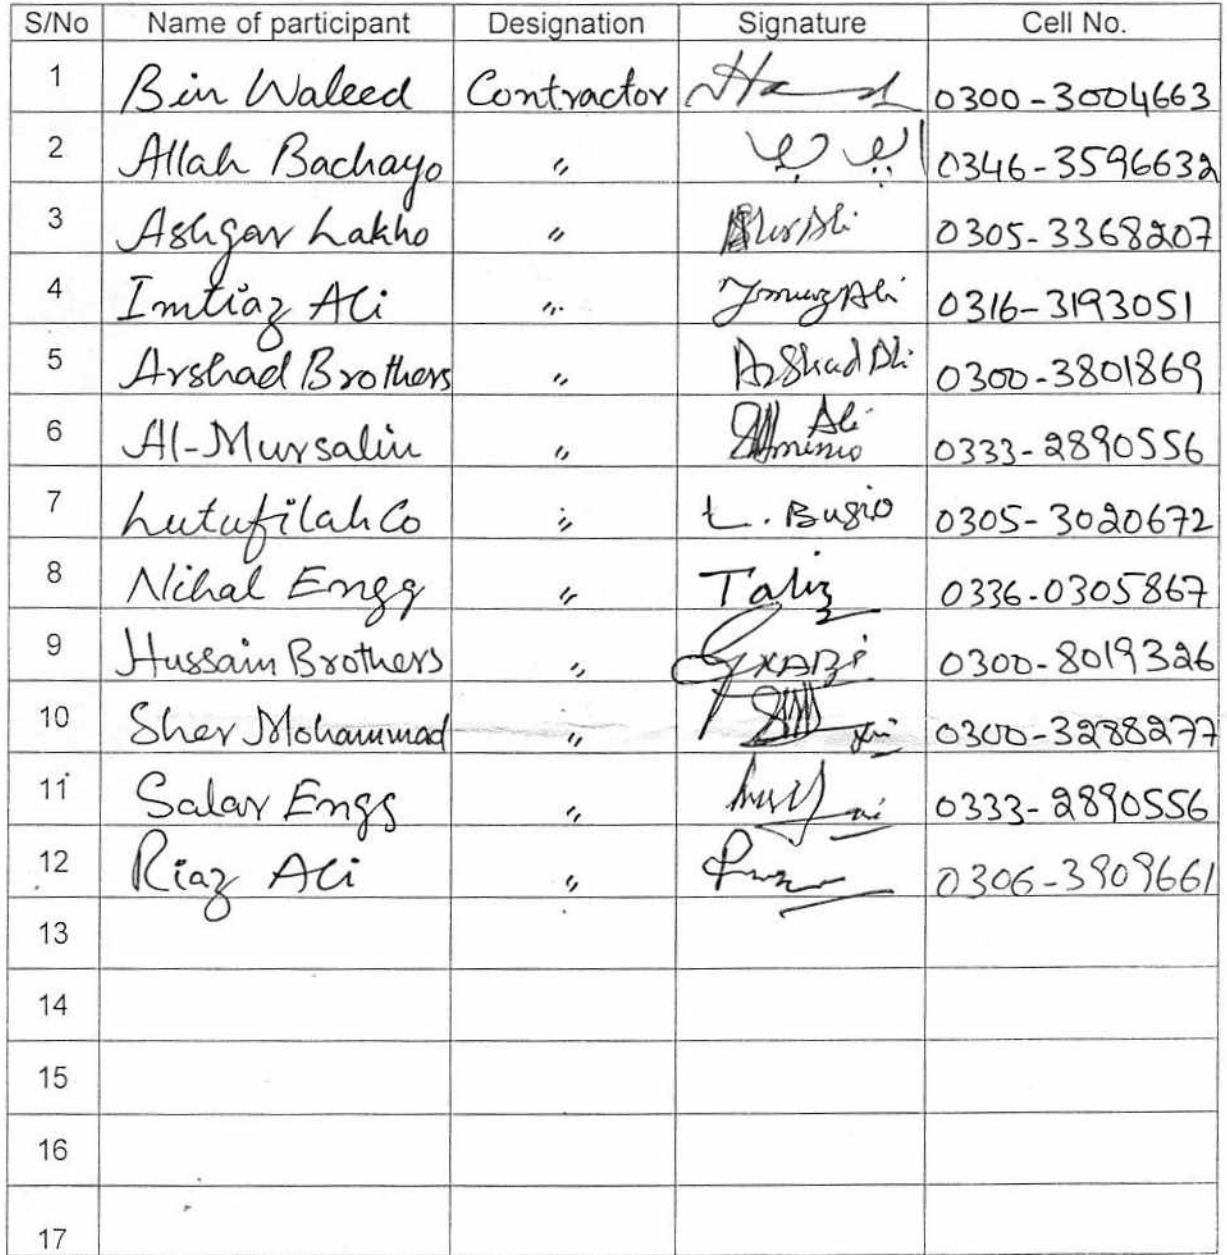 S/No Name of participant Designation Signature Cell No.
1 Bin Waleed Contractor 0300-3004663
2 Allah Bachayo " 0346-3596632
3 Ashgar Lakho " 0305-3368207
4 Imtiaz Ali " 0316-3193051
5 Arshad Brothers " Arshad Ali 0300-3801869
6 Al-Mursalin " 0333-2890556
7 Lutufilah Co " L. Bugio 0305-3020672
8 Nihal Engg " 0336-0305867
9 Hussain Brothers " 0300-8019326
10 Sher Mohammad " 0300-3288277
11 Salar Engg " 0333-2890556
12 Riaz Ali " 0306-3909661
13
14
15
16
17